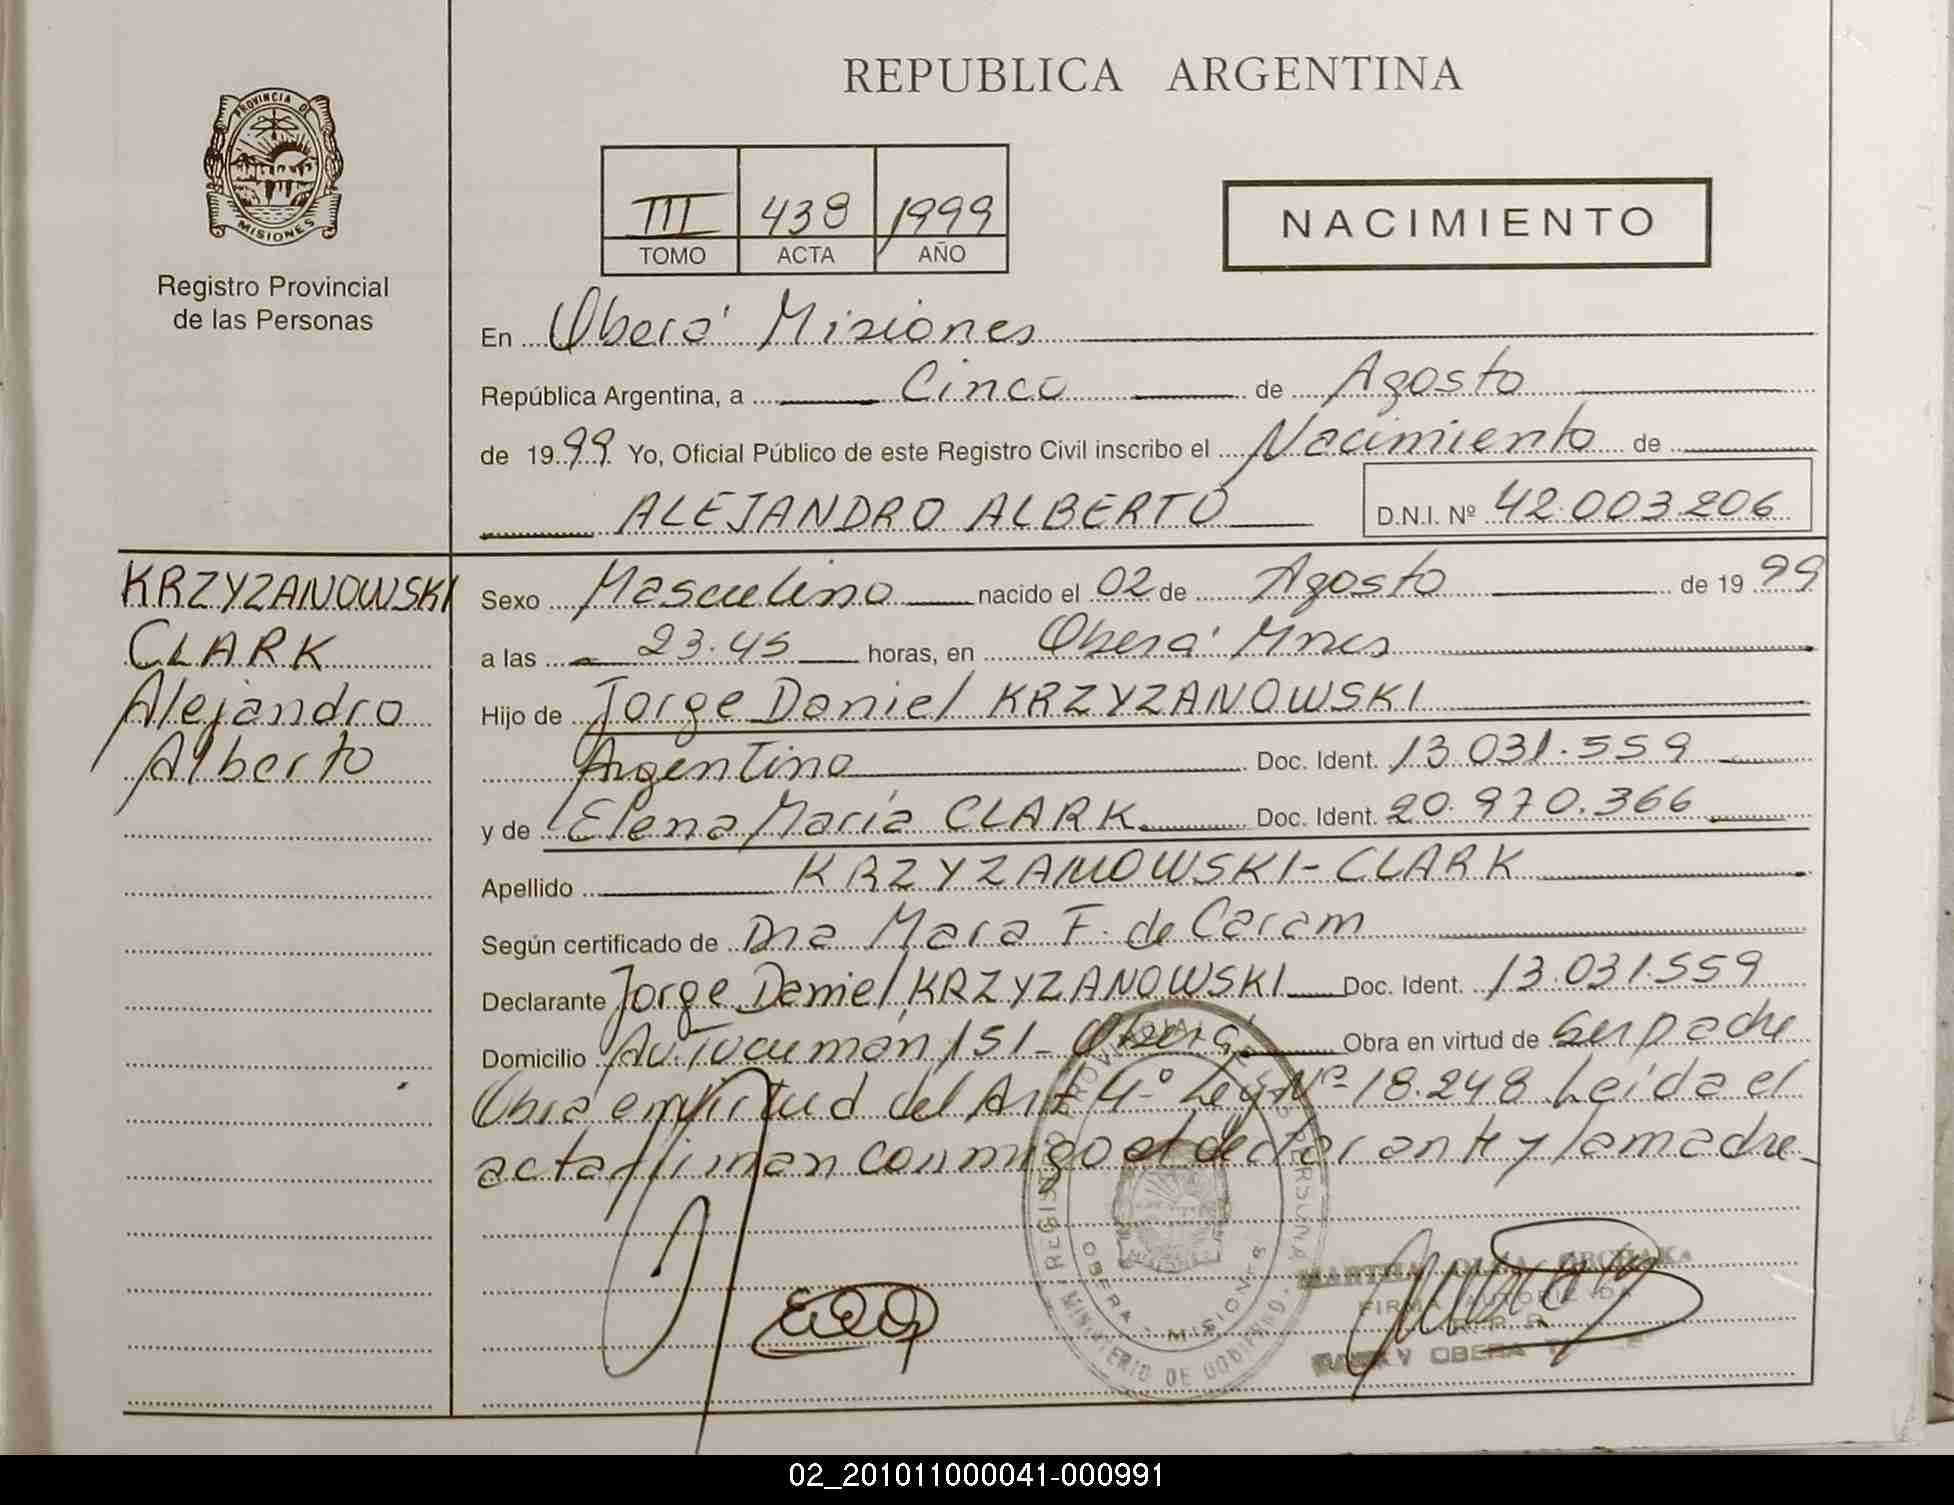 PROVINCIA DE
MISIONES
Registro Provincial
de las Personas
REPUBLICA ARGENTINA
III 438 1999
TOMO ACTA AÑO
NACIMIENTO
En Oberá Misiones
República Argentina, a Cinco de Agosto
de 1999 Yo, Oficial Público de este Registro Civil inscribo el Nacimiento de
ALEJANDRO ALBERTO D.N.I. Nº 42.003.206
KRZYZANOWSKI
CLARK
Alejandro
Alberto
Sexo Masculino nacido el 02 de Agosto de 1999
a las 23.45 horas, en Oberá Mnes
Hijo de Jorge Daniel KRZYZANOWSKI
Argentino Doc. Ident. 13.031.559
y de Elena María CLARK Doc. Ident. 20.970.366
Apellido KRZYZANOWSKI-CLARK
Según certificado de Dra Mara F. de Caram
Declarante Jorge Daniel KRZYZANOWSKI Doc. Ident. 13.031.559
Domicilio Av. Tucumán 151 - Oberá Obra en virtud de ser padre
Obra en virtud del Art 4º Ley Nº 18.248 Leída el
acta firman conmigo el declarante y la madre
REGISTRO PROVINCIAL DE LAS PERSONAS
OBERA - MISIONES
MINISTERIO DE GOBIERNO
MARTHA OLGA
FIRMA AUTORIZADA
R.P.P.
OBERA
02_201011000041-000991